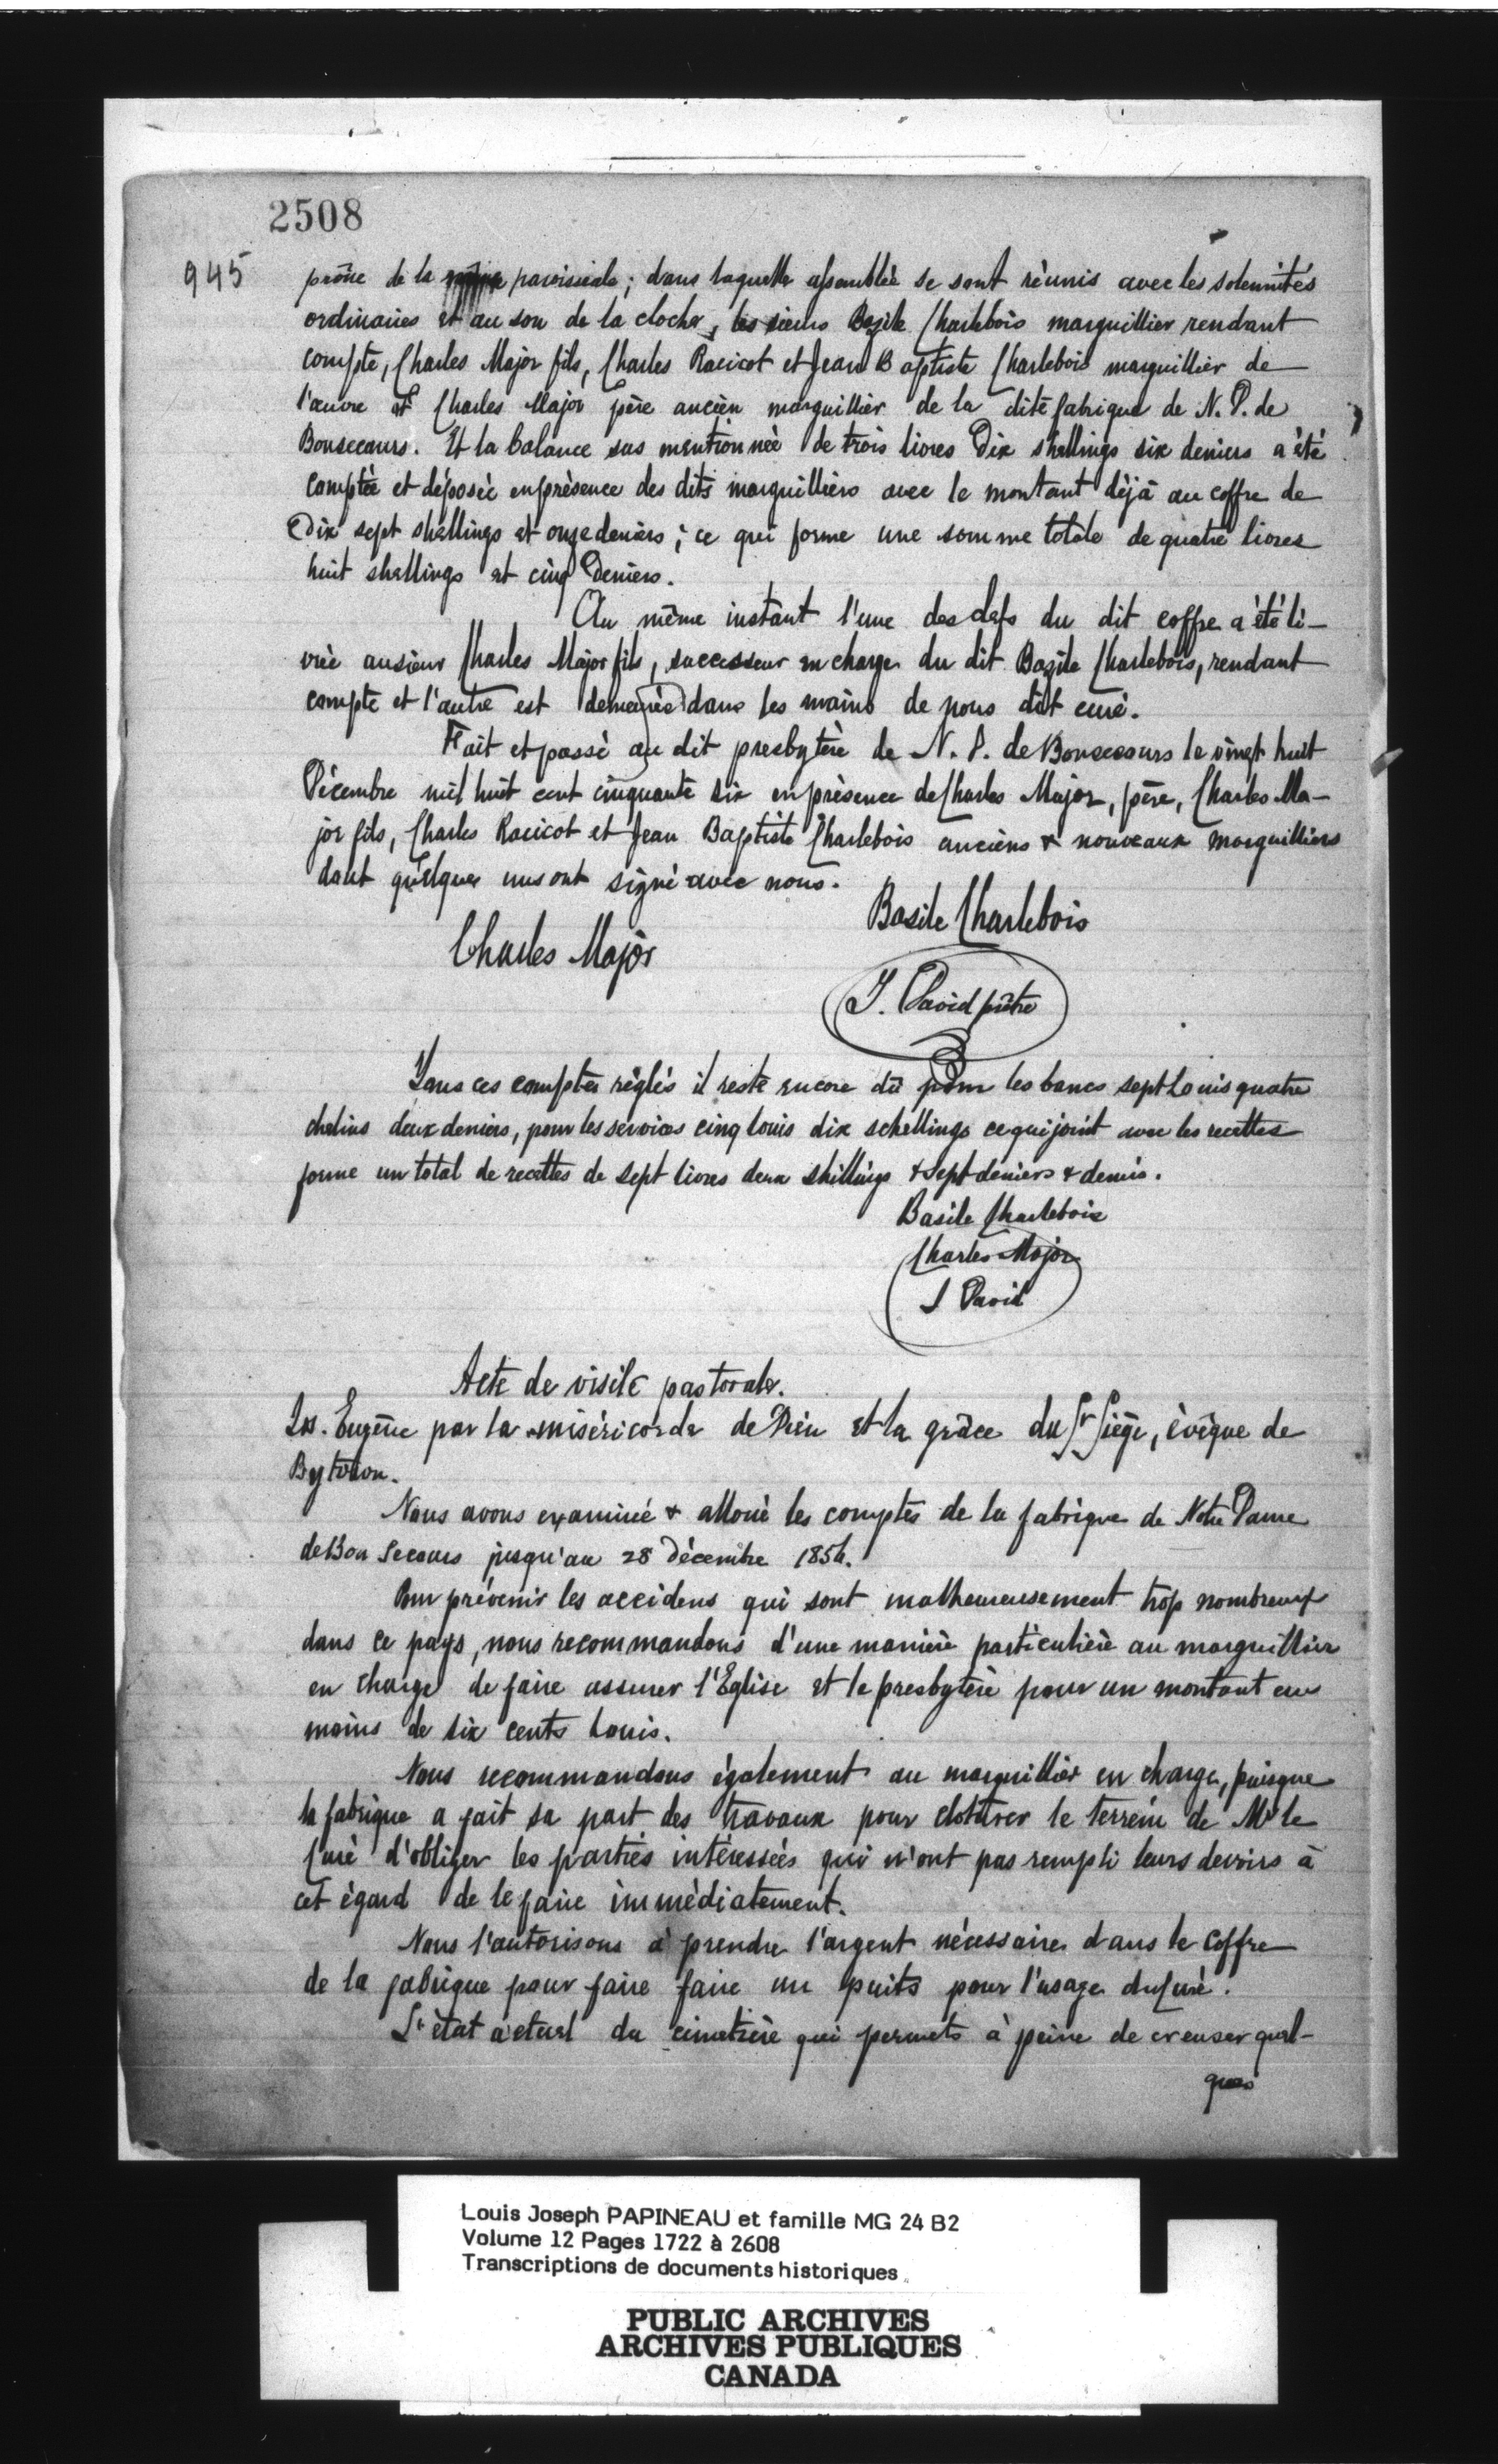 2508
945
prône de la paroissiale; dans laquelle assemblée se sont réunis avec les solennités
ordinaires et au son de la cloche, les sieurs Bazile Charlebois marguillier rendant
compte, Charles Major fils, Charles Racicot et Jean Baptiste Charlebois marguillier de
l'œuvre et Charles Major père ancien marguillier de la dite fabrique de N. D. de
Bonsecours. Et la balance sus mentionnée de trois livres Dix shellings six deniers a été
comptée et déposée en présence des dits marguilliers avec le montant déjà au coffre de
Dix sept shellings et onze deniers; ce qui forme une somme totale de quatre livres
huit shellings et cinq Deniers.
Au même instant l'une des clefs du dit coffre a été li-
vrée au sieur Charles Major fils, successeur en charge du dit Bazile Charlebois, rendant
compte et l'autre est demeurée dans les mains de nous dit curé.
Fait et passé au dit presbytère de N. D. de Bonsecours le vingt huit
Décembre mil huit cent cinquante six en présence de Charles Major, père, Charles Ma-
jor fils, Charles Racicot et Jean Baptiste Charlebois anciens & nouveaux marguilliers
dont quelques uns ont signé avec nous.
Basile Charlebois
Charles Major
J. David ptre
Tous ces comptes réglés il reste encore dû pour les bancs sept Louis quatre
chelins deux deniers, pour les services cinq louis dix schellings ce qui joint avec les recettes
forme un total de recettes de sept livres deux shillings & sept deniers & demis.
Basile Charlebois
Charles Major
J David
Acte de visite pastorale.
Jos. Eugène par la miséricorde de Dieu et la grâce du St Siège, évêque de
Bytown.
Nous avons examiné & alloué les comptes de la fabrique de Notre Dame
de Bon Secours jusqu'au 28 Décembre 1856.
Pour prévenir les accidens qui sont malheureusement trop nombreux
dans ce pays, nous recommandons d'une manière particulière au marguillier
en charge de faire assurer l'Eglise et le presbytère pour un montant au
moins de six cents Louis.
Nous recommandons également au marguillier en charge, puisque
la fabrique a fait sa part des travaux pour cloturer le terrein de Mr le
Curé d'obliger les parties intéressées qui n'ont pas rempli leurs devoirs à
cet égard de le faire immédiatement.
Nous l'autorisons à prendre l'argent nécessaire dans le Coffre
de la fabrique pour faire faire un puits pour l'usage du Curé.
L'état actuel du cimetière qui permets à peine de creuser quel-
ques
Louis Joseph PAPINEAU et famille MG 24 B2
Volume 12 Pages 1722 à 2608
Transcriptions de documents historiques
PUBLIC ARCHIVES
ARCHIVES PUBLIQUES
CANADA